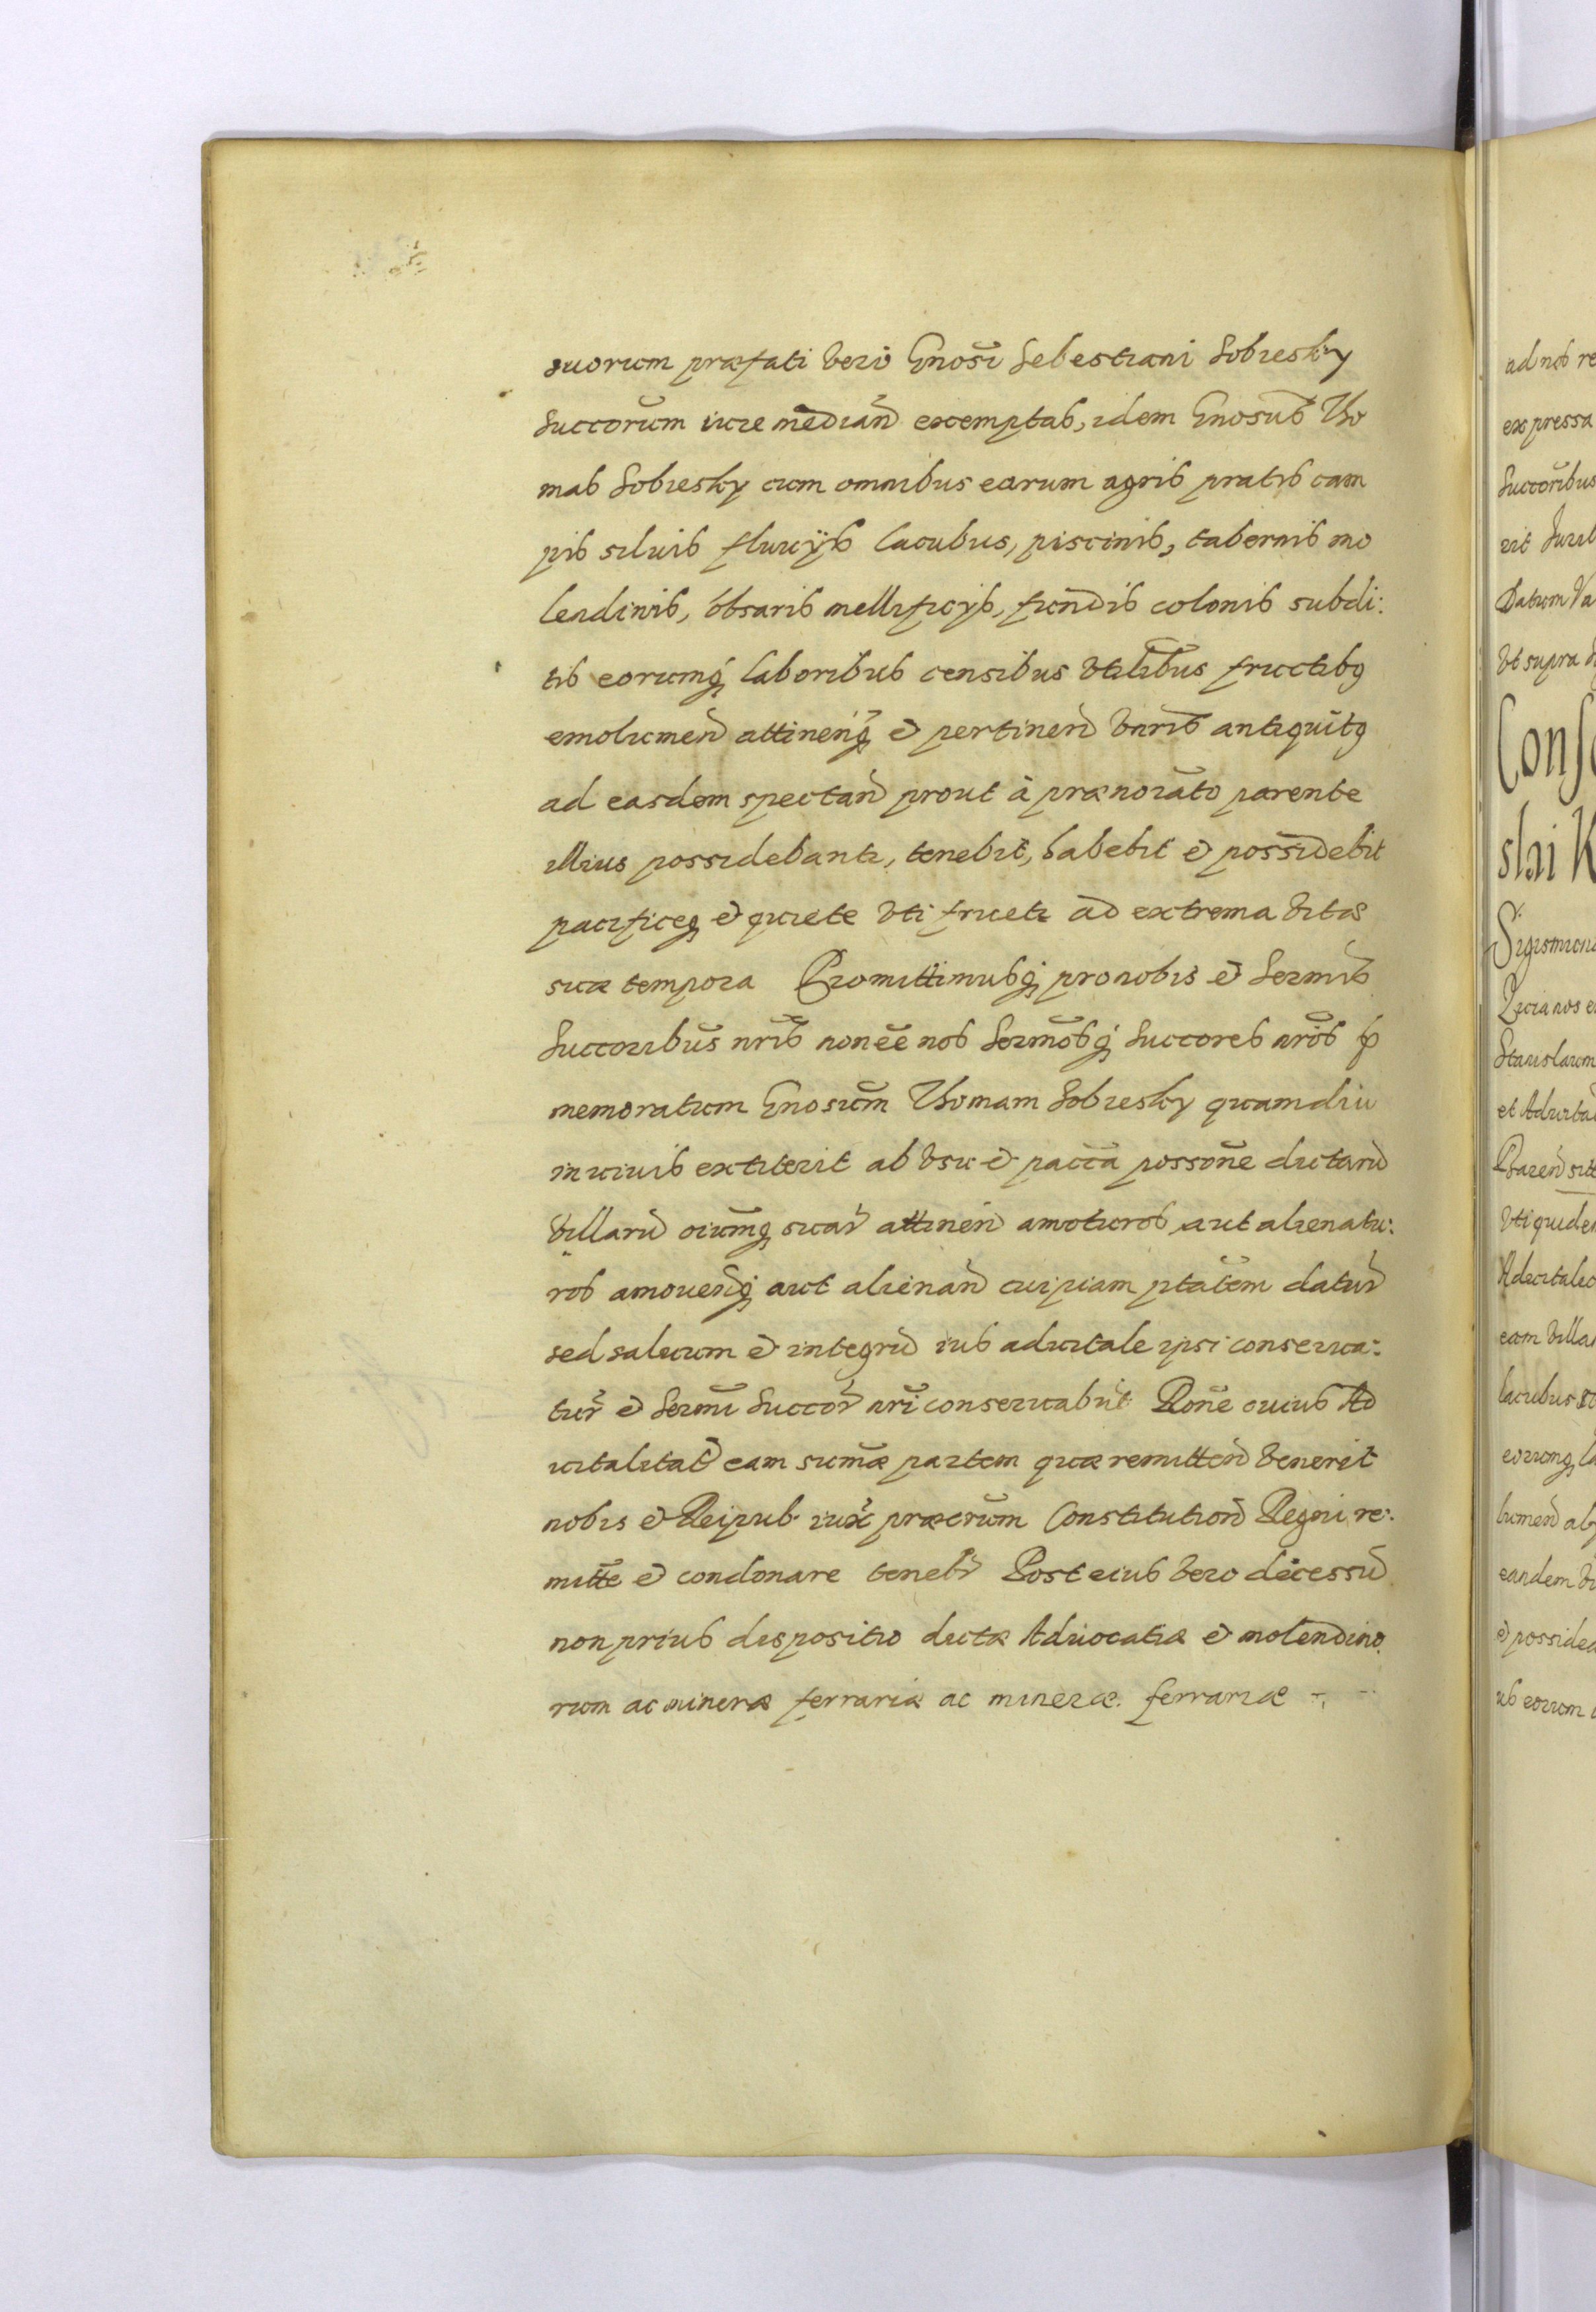 suorum præfati vero Gnosi Sebestiani Sobiesky
Succorum iure median exemptas, idem Gnosus Tho
mas Sobiesky cum omnibus earum agris pratis cam
pis siluis fluuijs lacubus, piscinis, tabernis mo
lendinis, obsaris mellificijs, fundis colonis subdi:
tis eorumq laboribus censibus vtilibus fructibq
emolumen attinenq et pertinen vnris antiquitq
ad easdem spectan prout à prænorato parente
illius possidebantr, tenebit, habebit et possidebit
pacificeq et quiete vti fruetr ad extrema vitæ
suæ tempora Promittimusq pro nobis et Sermis
Succoribus nris non ee nos Sermosq Succores nros p
memoratum Gnosum Thomam Sobiesky quamdiu
in viuis extiterit ab vsu et pacca possone dictaru
villaru oiumq suar attinen amoturos aut alienatu:
ros amouendq aut alienan cuipiam ptatem datur
sed saluum et integru ius aduitale ipsi conserua:
tur et Sermi Succor nri conseruabut Rone cuius Ad
uitalitat eam sumæ partem quæ remitten venerit
nobis et Reipub. iux præcrum Constitution Regni re:
mitte et condonare tenebr Post eius vero decessu
non prius dispositio dictæ Aduocatiæ et molendino
rum ac mineræ ferrariæ ac mineræ ferrariæ

ad nos re
expressa
Succoribus
rit Juri
Datum Va
vt supra
Cons
slai K
Sigismun
Stanislaum
et Aduita
vti quide
Aduitalit
eam villa
lacubus
eorumq la
lumen
eandem vi
et posside
us eorum